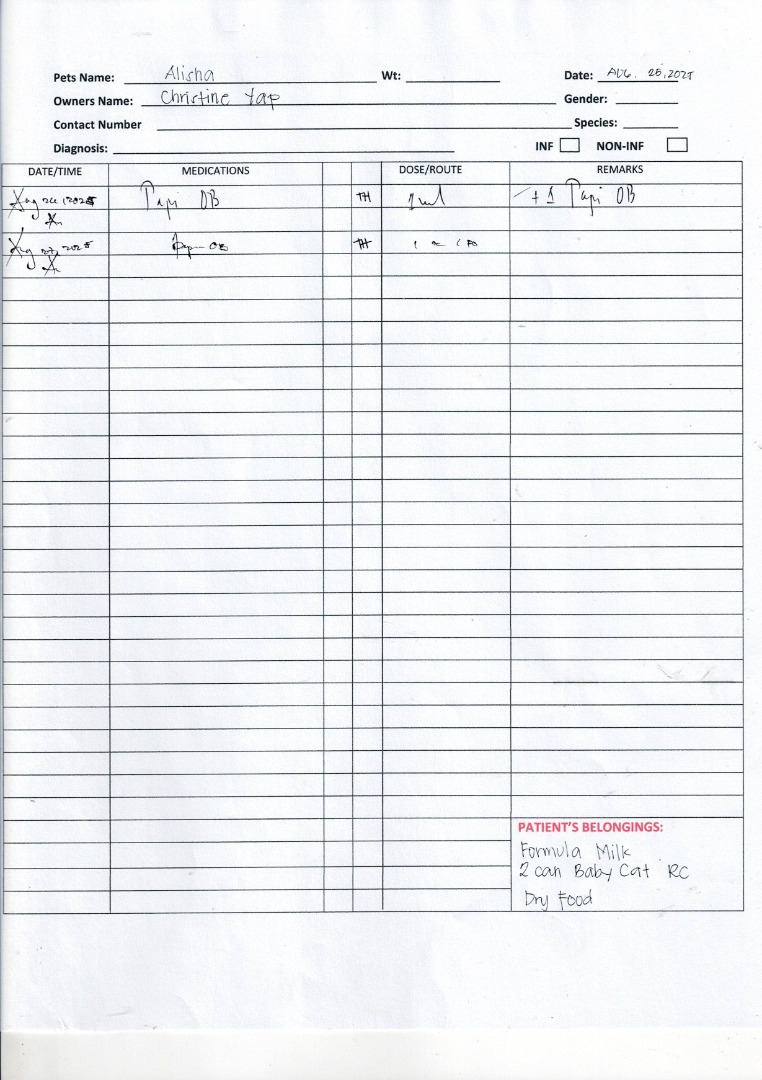 Pets Name: Alisha Wt: Date: AUG. 25, 2025
Owners Name: Christine Yap Gender:
Contact Number Species:
Diagnosis: INF NON-INF
DATE/TIME MEDICATIONS DOSE/ROUTE REMARKS
Aug 26, 2025 Papi OB TH 1ml + 1 Papi OB
Aug 27, 2025 Papi OB TH 1
PATIENT'S BELONGINGS:
Formula Milk
2 can Baby Cat RC
Dry Food